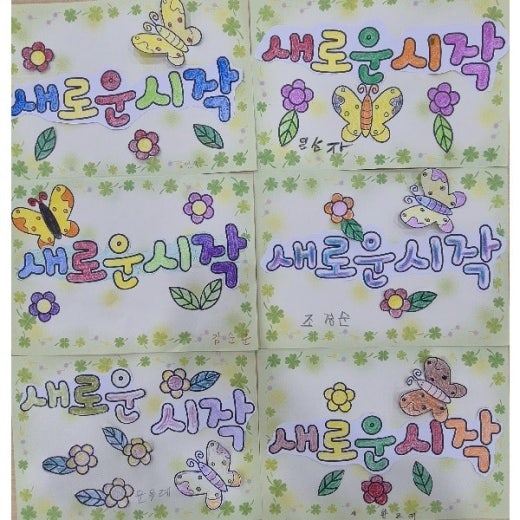 새로운시작
새로운시작
새로운시작
새로운시작
조경순
새로운 시작
새로운시작